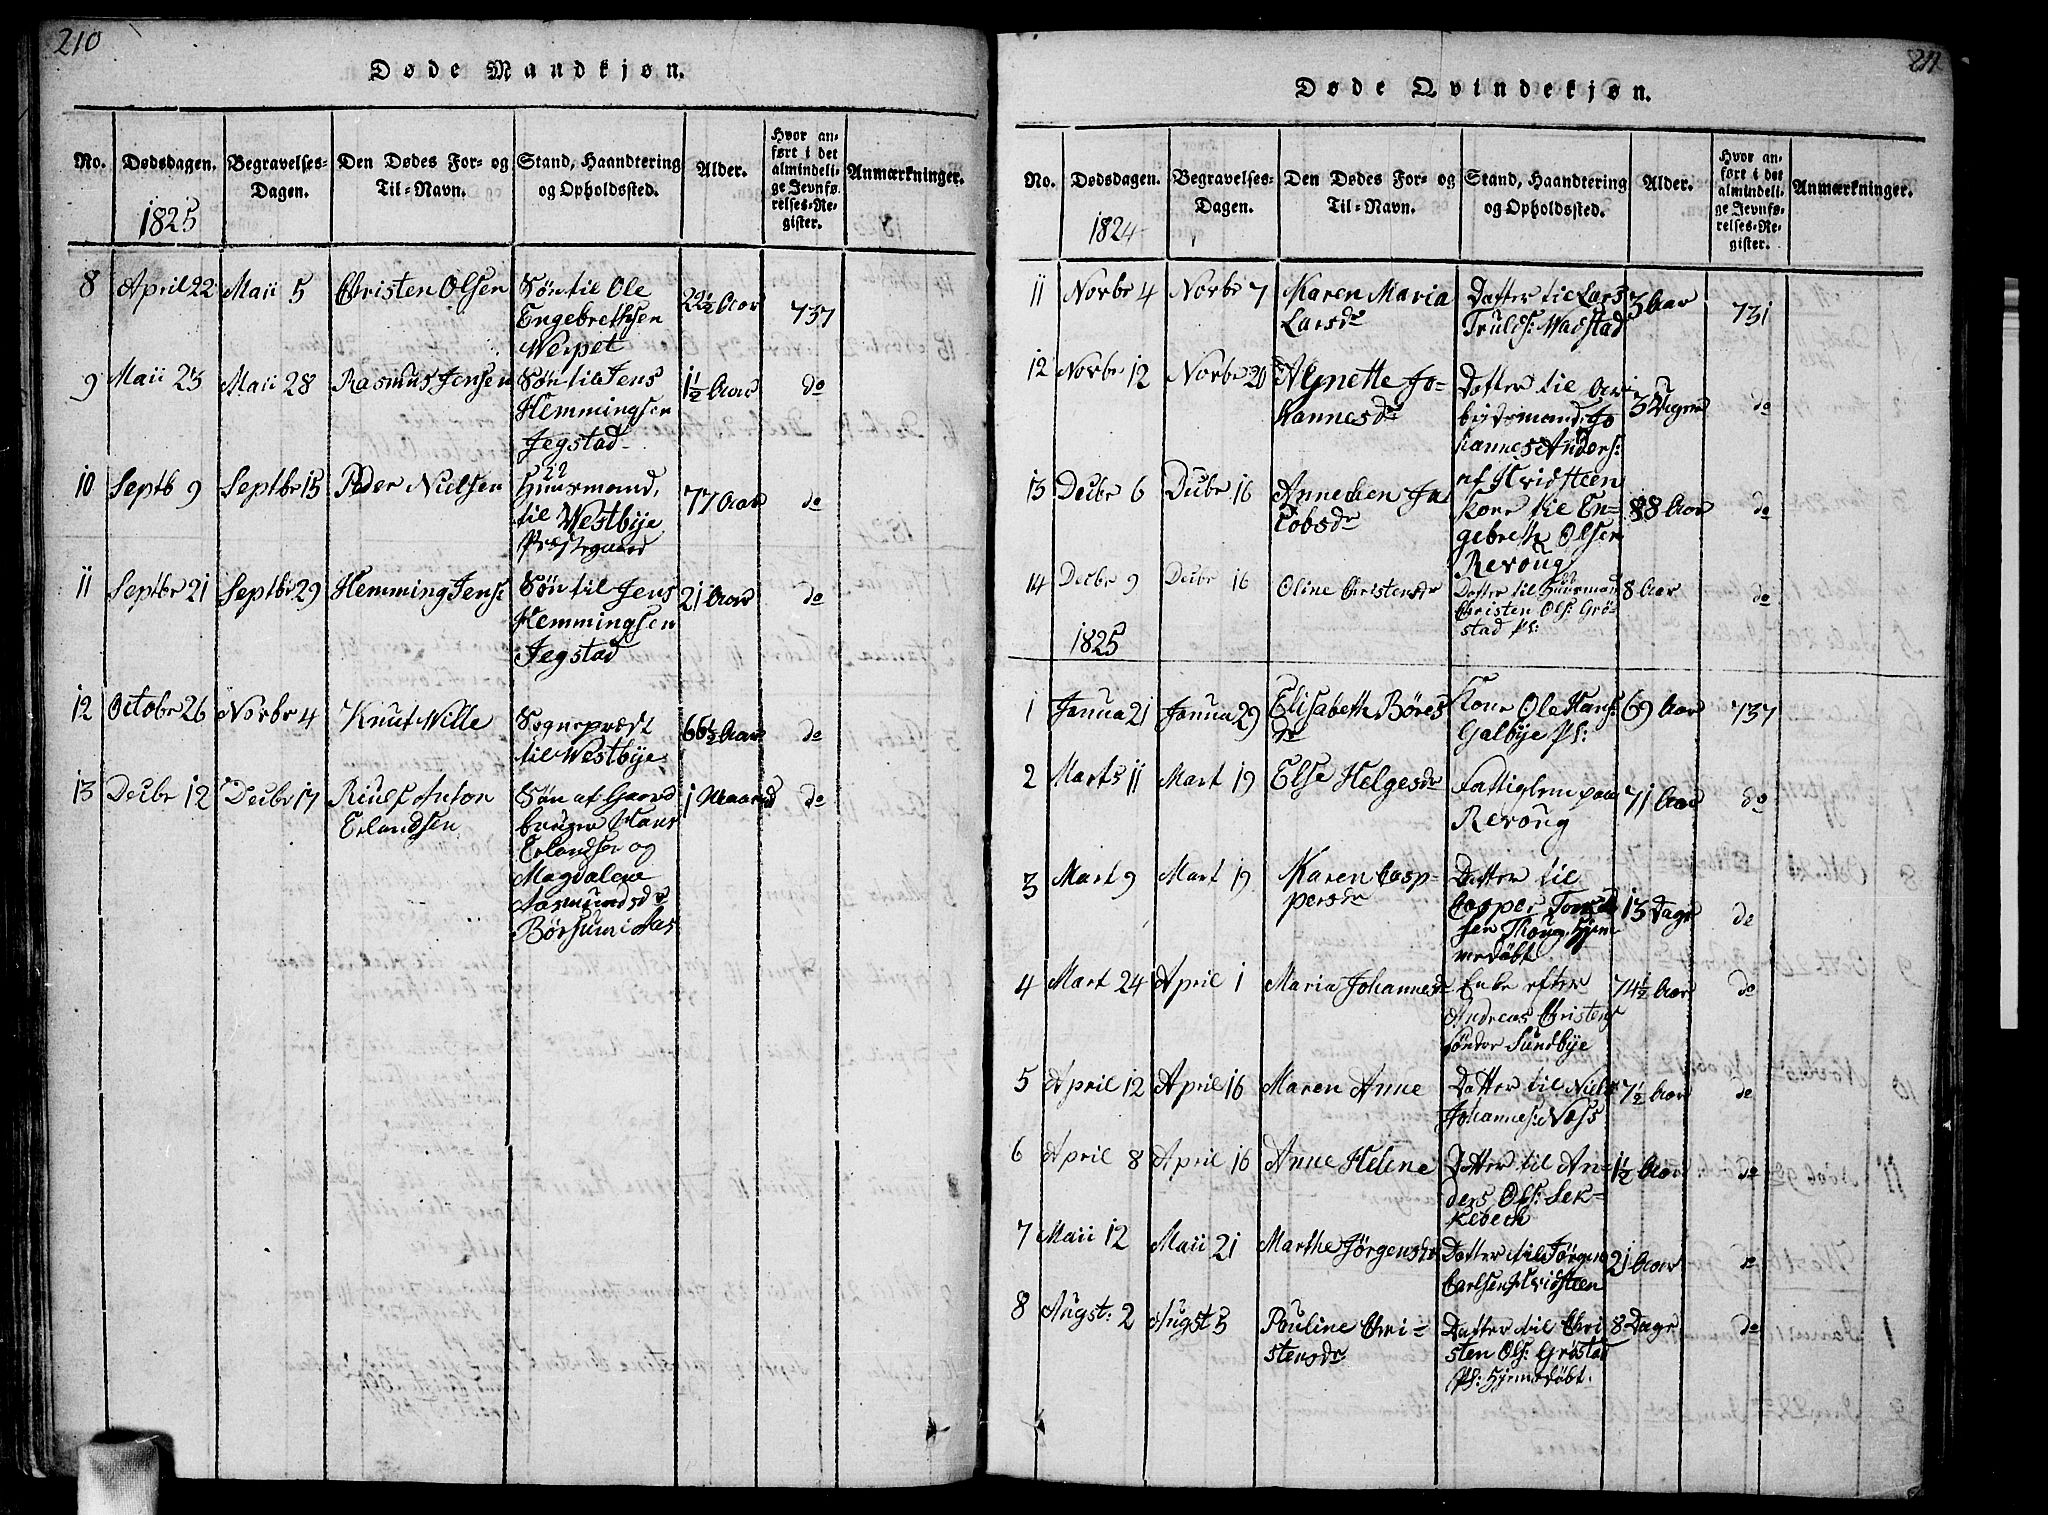 210
Døde Mandkjøn.
No.
Dødsdagen.
1825
Begravelses-
Dagen.
Den Dødes For- og
Til-Navn.
Stand, Haandtering
og Opholdssted.
Alder.
Hvor an-
ført i det
almindeli-
ge Jevnfø-
relses-Re-
gister.
Anmærkninger.
8 April 22 Maii 5 Christen Olsen Søn til Ole
Engebrethsen
22½ Aar 737
9 Maii 23 Maii 28 Rasmus Jensen Søn til Jens
Hemmingsen
Jegstad
1½ Aar do
10 Septb 9 Septbr 15 Peder Nielsen Huusmand
til Westbye
Præstegaard
77 Aar do
11 Septbr 21 Septbr 29 Hemming Jens: Søn til Jens
Hemmingsen
Jegstad
21 Aar do
12 Octobr 26 Novbr 4 Knut Wille Sognepræst
til Westbye
66½ Aar do
13 Decbr 12 Decbr 17 Anton
Erlandsen
Søn af Gaard
bruger Hans
Erlandsen og
Magdalene
Aasmundsdr
Børsum i Aas
1 Maaned do
211
Døde Qvindekjøn.
No.
Dødsdagen.
1824
Begravelses-
Dagen.
Den Dødes For- og
Til-Navn.
Stand, Haandtering
og Opholdssted.
Alder.
Hvor an-
ført i det
almindeli-
ge Jevnfø-
relses-Re-
gister.
Anmærkninger.
11 Novbr 4 Novbr 7 Karen Maria
Larsdr
Datter til Lars
Truls: Wadstad
3 Aar 731
12 Novbr 12 Novbr 20 Agnette Jo-
hannesdr
Datter til Ar
bejdsmand Jo
hannes Anders:
af Hvidsteen
do
13 Decbr 6 Decbr 16 Annechen Ja
cobsdr
Kone til En-
gebreth Olsen
Revoug
88 Aar do
14 Decbr 9 Decbr 16 Oline Christensdr Datter til Huusmand
Christen Ols: Grø-
stad Pl:
8 Aar do
1825
1 Janua 21 Janua 29 Elisabeth Børes
dr
Kone Ole Hans:
Galbye Pl:
69 Aar 737
2 Marts 11 Mart 19 Else Helgesdr Fattiglem paa
Revoug
71 Aar do
3 Mart 9 Mart 19 Karen Casp-
persdr
Datter til
Casper
sen Hjem
medøbt
13 Dage do
4 Mart 24 April 1 Maria Johannesdr Enke efter
Andreas Christens
Søndor Sundbye
74½ Aar do
5 April 12 April 16 Maren Anne Datter til Niels
Johannes: Næss
7½ Aar do
6 April 8 April 16 Anne Helene Datter til An-
ders Ols: Sek-
kebeck
1½ Aar do
7 Maii 12 Maii 21 Marthe Jørgensdr Datter til Jørgen
Carlsen Hvidsteen
21 Aar do
8 Augst: 2 Augst 5 Pauline Chri-
stensdr
Datter til Chri
sten Ols: Grøstad
Pl: Hjemedøbt.
8 Dage do